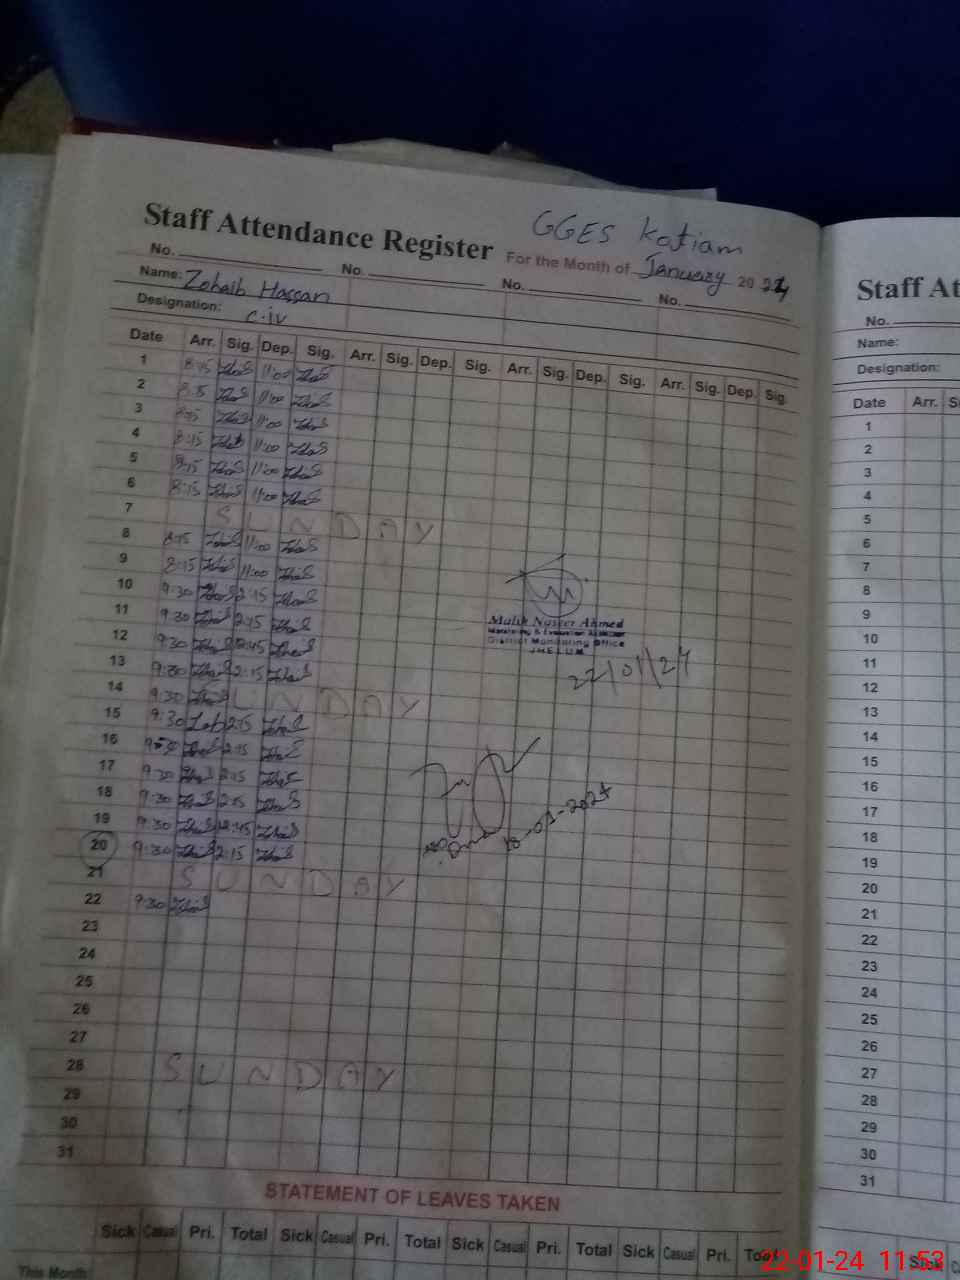 GGES Kotiam
Staff Attendance Register For the Month of January 2024
No. No. No. No.
Name: Zohaib Hassan
Designation: C-iv
Date Arr. Sig. Dep. Sig. Arr. Sig. Dep. Sig. Arr. Sig. Dep. Sig. Arr. Sig. Dep. Sig.
1 8:15 11:00
2 8:15 11:00
3 8:15 11:00
4 8:15 11:00
5 8:15 11:00
6 8:15 11:00
7 SUNDAY
8 8:15 11:00
9 8:15 11:00
10 9:30 2:15
11 9:30 2:15
12 9:30 12:45
13 9:30 2:15
14 9:30 SUNDAY
15 9:30 2:15
16 9:30 2:15
17 9:30 2:15
18 9:30 2:15
19 9:30 12:45
20 9:30 2:15
21 SUNDAY
22 9:30
23
24
25
26
27
28 SUNDAY
29
30
31
Malik Naseer Ahmed
Monitoring & Evaluation
District Monitoring Office
JHELUM
22/01/24
18-01-2024
STATEMENT OF LEAVES TAKEN
Sick Casual Pri. Total Sick Casual Pri. Total Sick Casual Pri. Total Sick Casual Pri. Total
This Month
Staff At
No.
Name:
Designation:
Date Arr. S
1
2
3
4
5
6
7
8
9
10
11
12
13
14
15
16
17
18
19
20
21
22
23
24
25
26
27
28
29
30
31
Sick
22-01-24 11:53